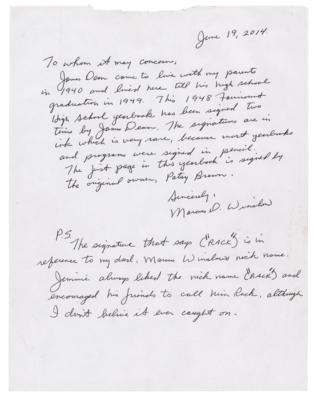 June 19, 2014
To whom it may concern,
James Dean came to live with my parents
in 1940 and lived here till his high school
graduation in 1949. This 1948 Fairmount
High School yearbook has been signed two
times by James Dean. The signatures are in
ink which is very rare, because most yearbooks
and programs were signed in pencil.
The first page in this yearbook is signed by
the original owner, Patsy Brown.
Sincerely,
Marcus D. Winslow
P.S.
The signature that says ("RACK") is in
reference to my dad, Marcus Winslows nick name.
Jimmie always liked the nick name ("RACK") and
encouraged his friends to call him Rack, although
I don't believe it ever caught on.